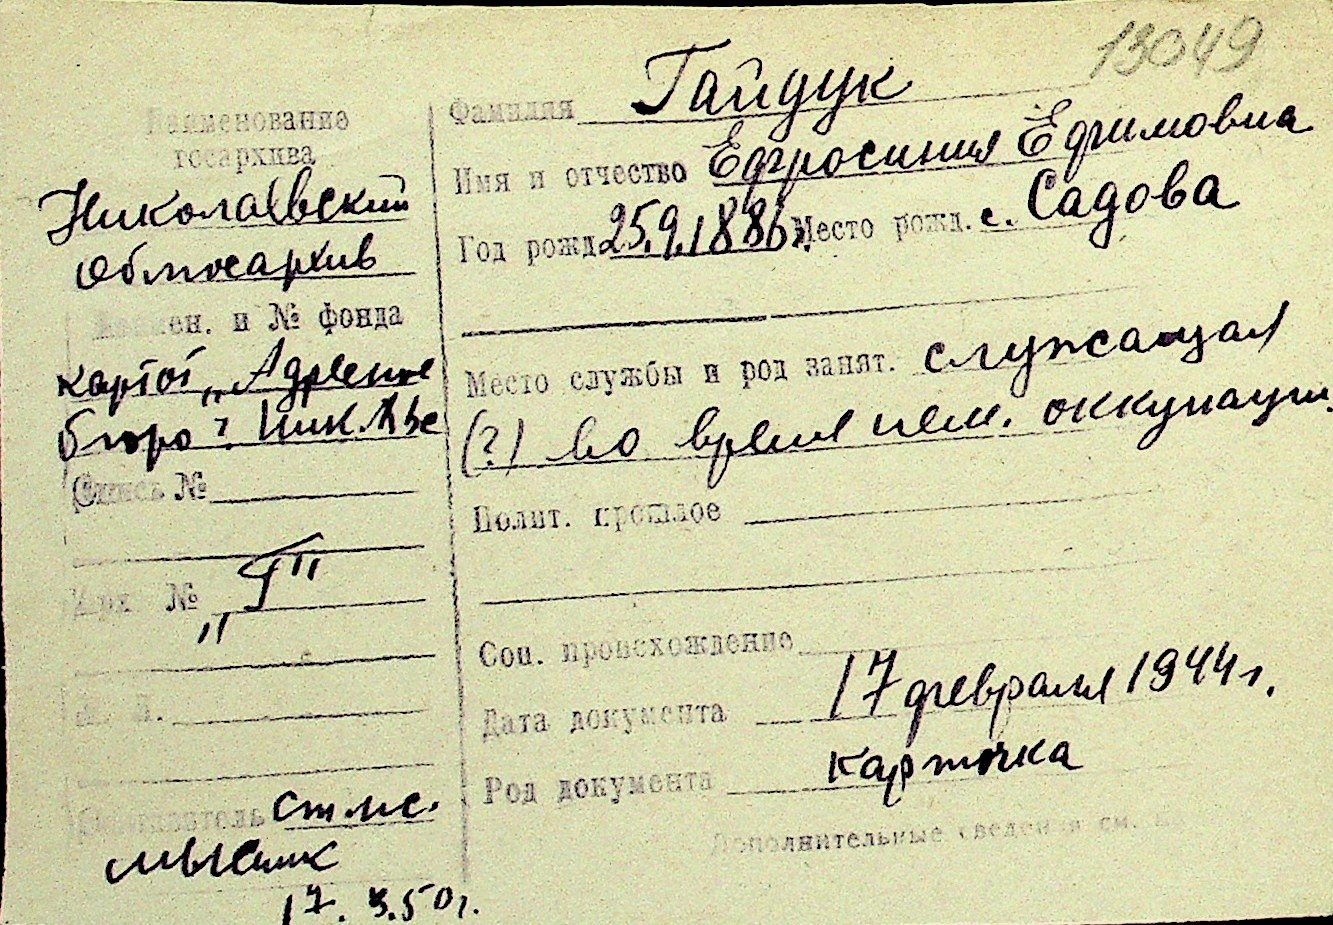 13049
Наименование
госархива
Николаевский
Облгосархив
Наимен. и № фонда
картот „Адресное
бюро" г. Ник.
Опись №
Арх №
„Г"
Л. Л.
Составитель ст. н.с.
17. 3. 50 г.
Фамилия Гайдук
Имя и отчество Ефросиния Ефимовна
Год рожд. 25.9.1886 г. Место рожд. с. Садова
Место службы и род занят. служащая
(?) во время нем. оккупации.
Полит. прошлое
Соц. происхождение
Дата документа 17 февраля 1944 г.
Род документа карточка
Дополнительные сведения см. на